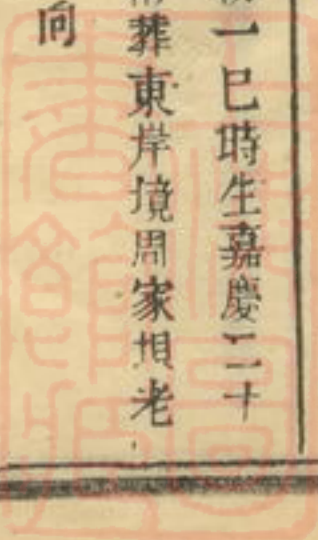 一巳時生嘉慶二十
葬東岸境周家垻老
向